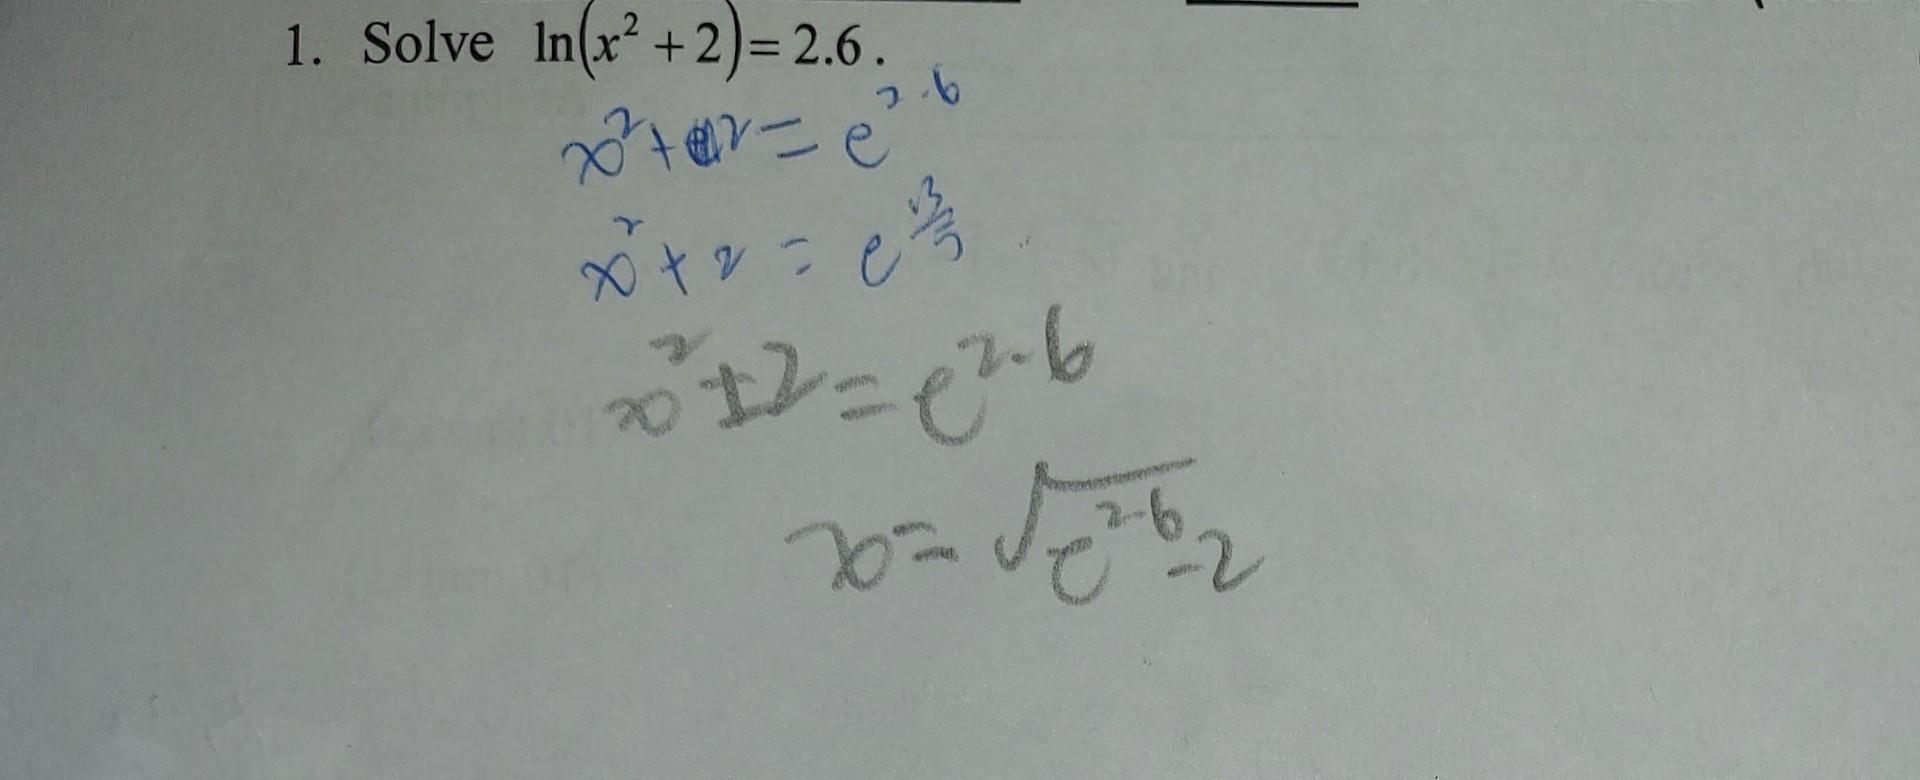 1. Solve ln(x² + 2) = 2.6.
x² + 2 = e^2.6
x² + 2 = e^13/5
x² + 2 = e^2.6
x = √e^2.6 - 2